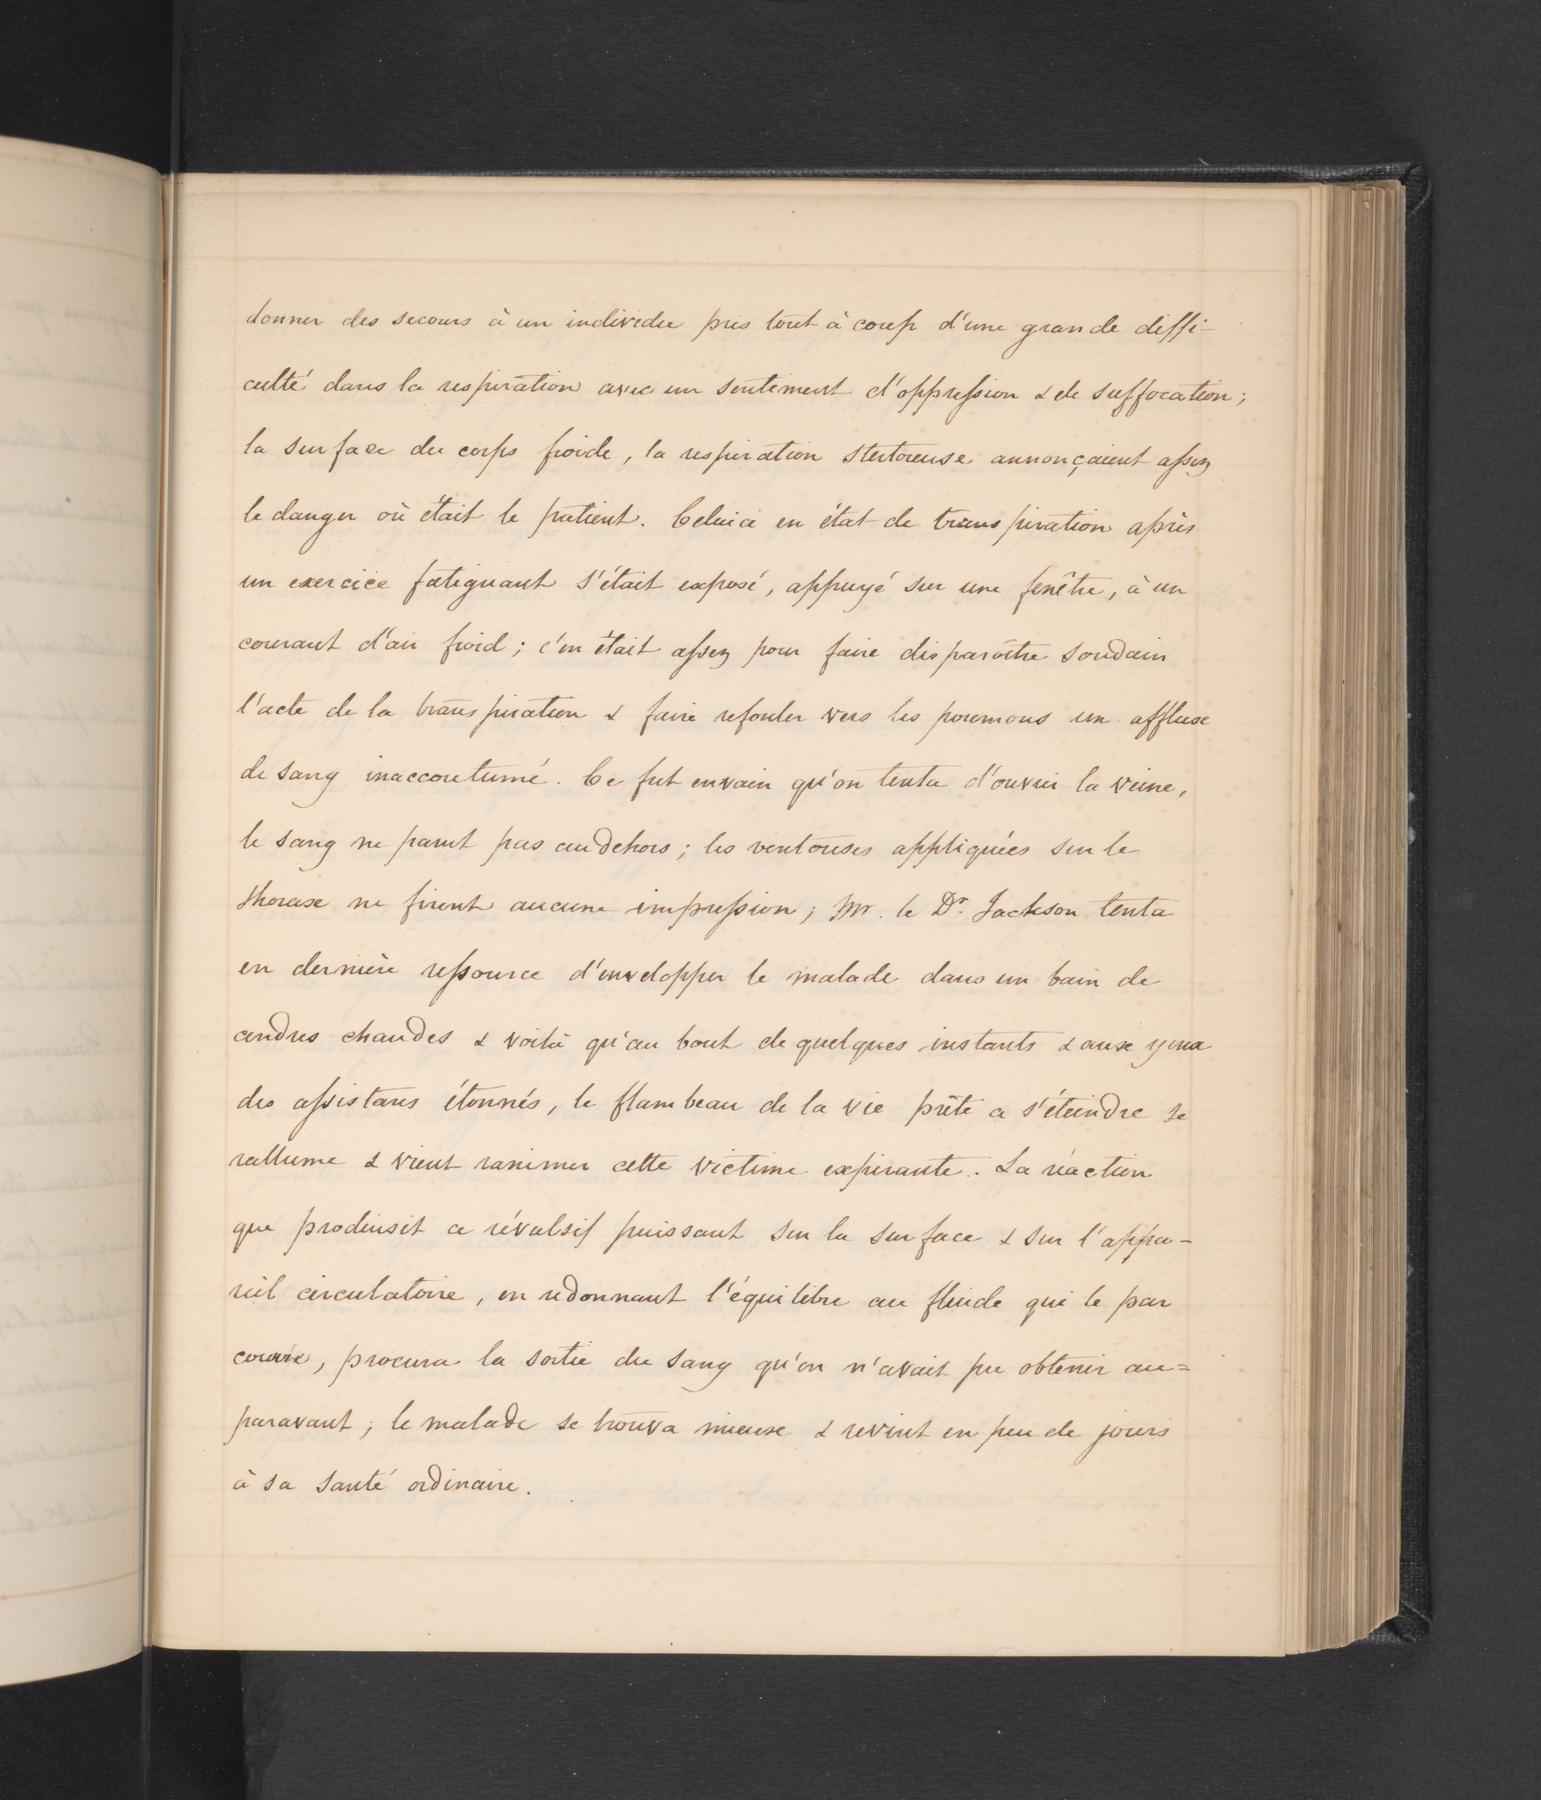 donner des secours à un individu pris tout à coup d'une grande diffi-
culté dans la respiration avec un sentiment d'oppression & de suffocation;
la surface du corps froide, la respiration stertoreuse annonçaient assez
le danger où était le patient. Celui ci en état de transpiration après
un exercice fatiguant s'était exposé, appuyé sur une fenêtre, à un
courant d'air froid; c'en était assez pour faire disparoître soudain
l'acte de la transpiration & faire refouler vers les poumons un afflux
de sang inaccoutumé. Ce fut envain qu'on tenta d'ouvrir la veine,
le sang ne parut pas audehors; les ventouses appliquées sur le
thorax ne firent aucune impression; Mr. le Dr. Jackson tenta
en dernière ressource d'envelopper le malade dans un bain de
cendres chaudes & voilà qu'au bout de quelques instants & aux yeux
des assistans étonnés, le flambeau de la vie prête a s'éteindre se
rallume & vient ranimer cette victime expirante. La réaction
que produisit ce révulsif puissant sur la surface & sur l'appa-
reil circulatoire, en redonnant l'équilibre au fluide qui le par
coure, procura la sortie du sang qu'on n'avait pu obtenir au=
paravant; le malade se trouva mieux & revint en peu de jours
à sa santé ordinaire.